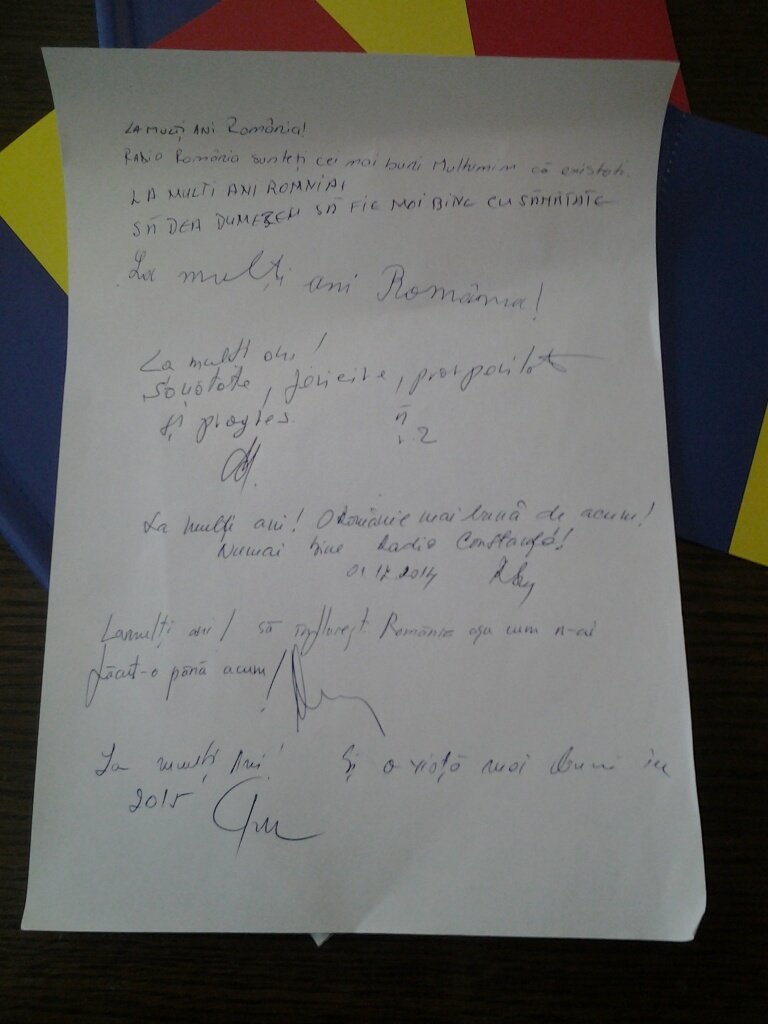 LA MULȚI ANI România!
RADIO România sunteți cei mai buni Multumim că existati.
LA MULTI ANI ROMNIAI
SĂ DEA DUMEZEU SĂ FIE MAI BINE CU SĂNĂTATE
La mulți ani România!
La mulți ani!
Sănătate, fericire, prosperitate
și progres.
La mulți ani! O Românie mai bună de acum!
Numai bine Radio Constanța!
01.12.2014
La mulți ani! să înflorești România așa cum n-ai
făcut-o până acum!
La mulți Ani! Și o viață mai bună in
2015